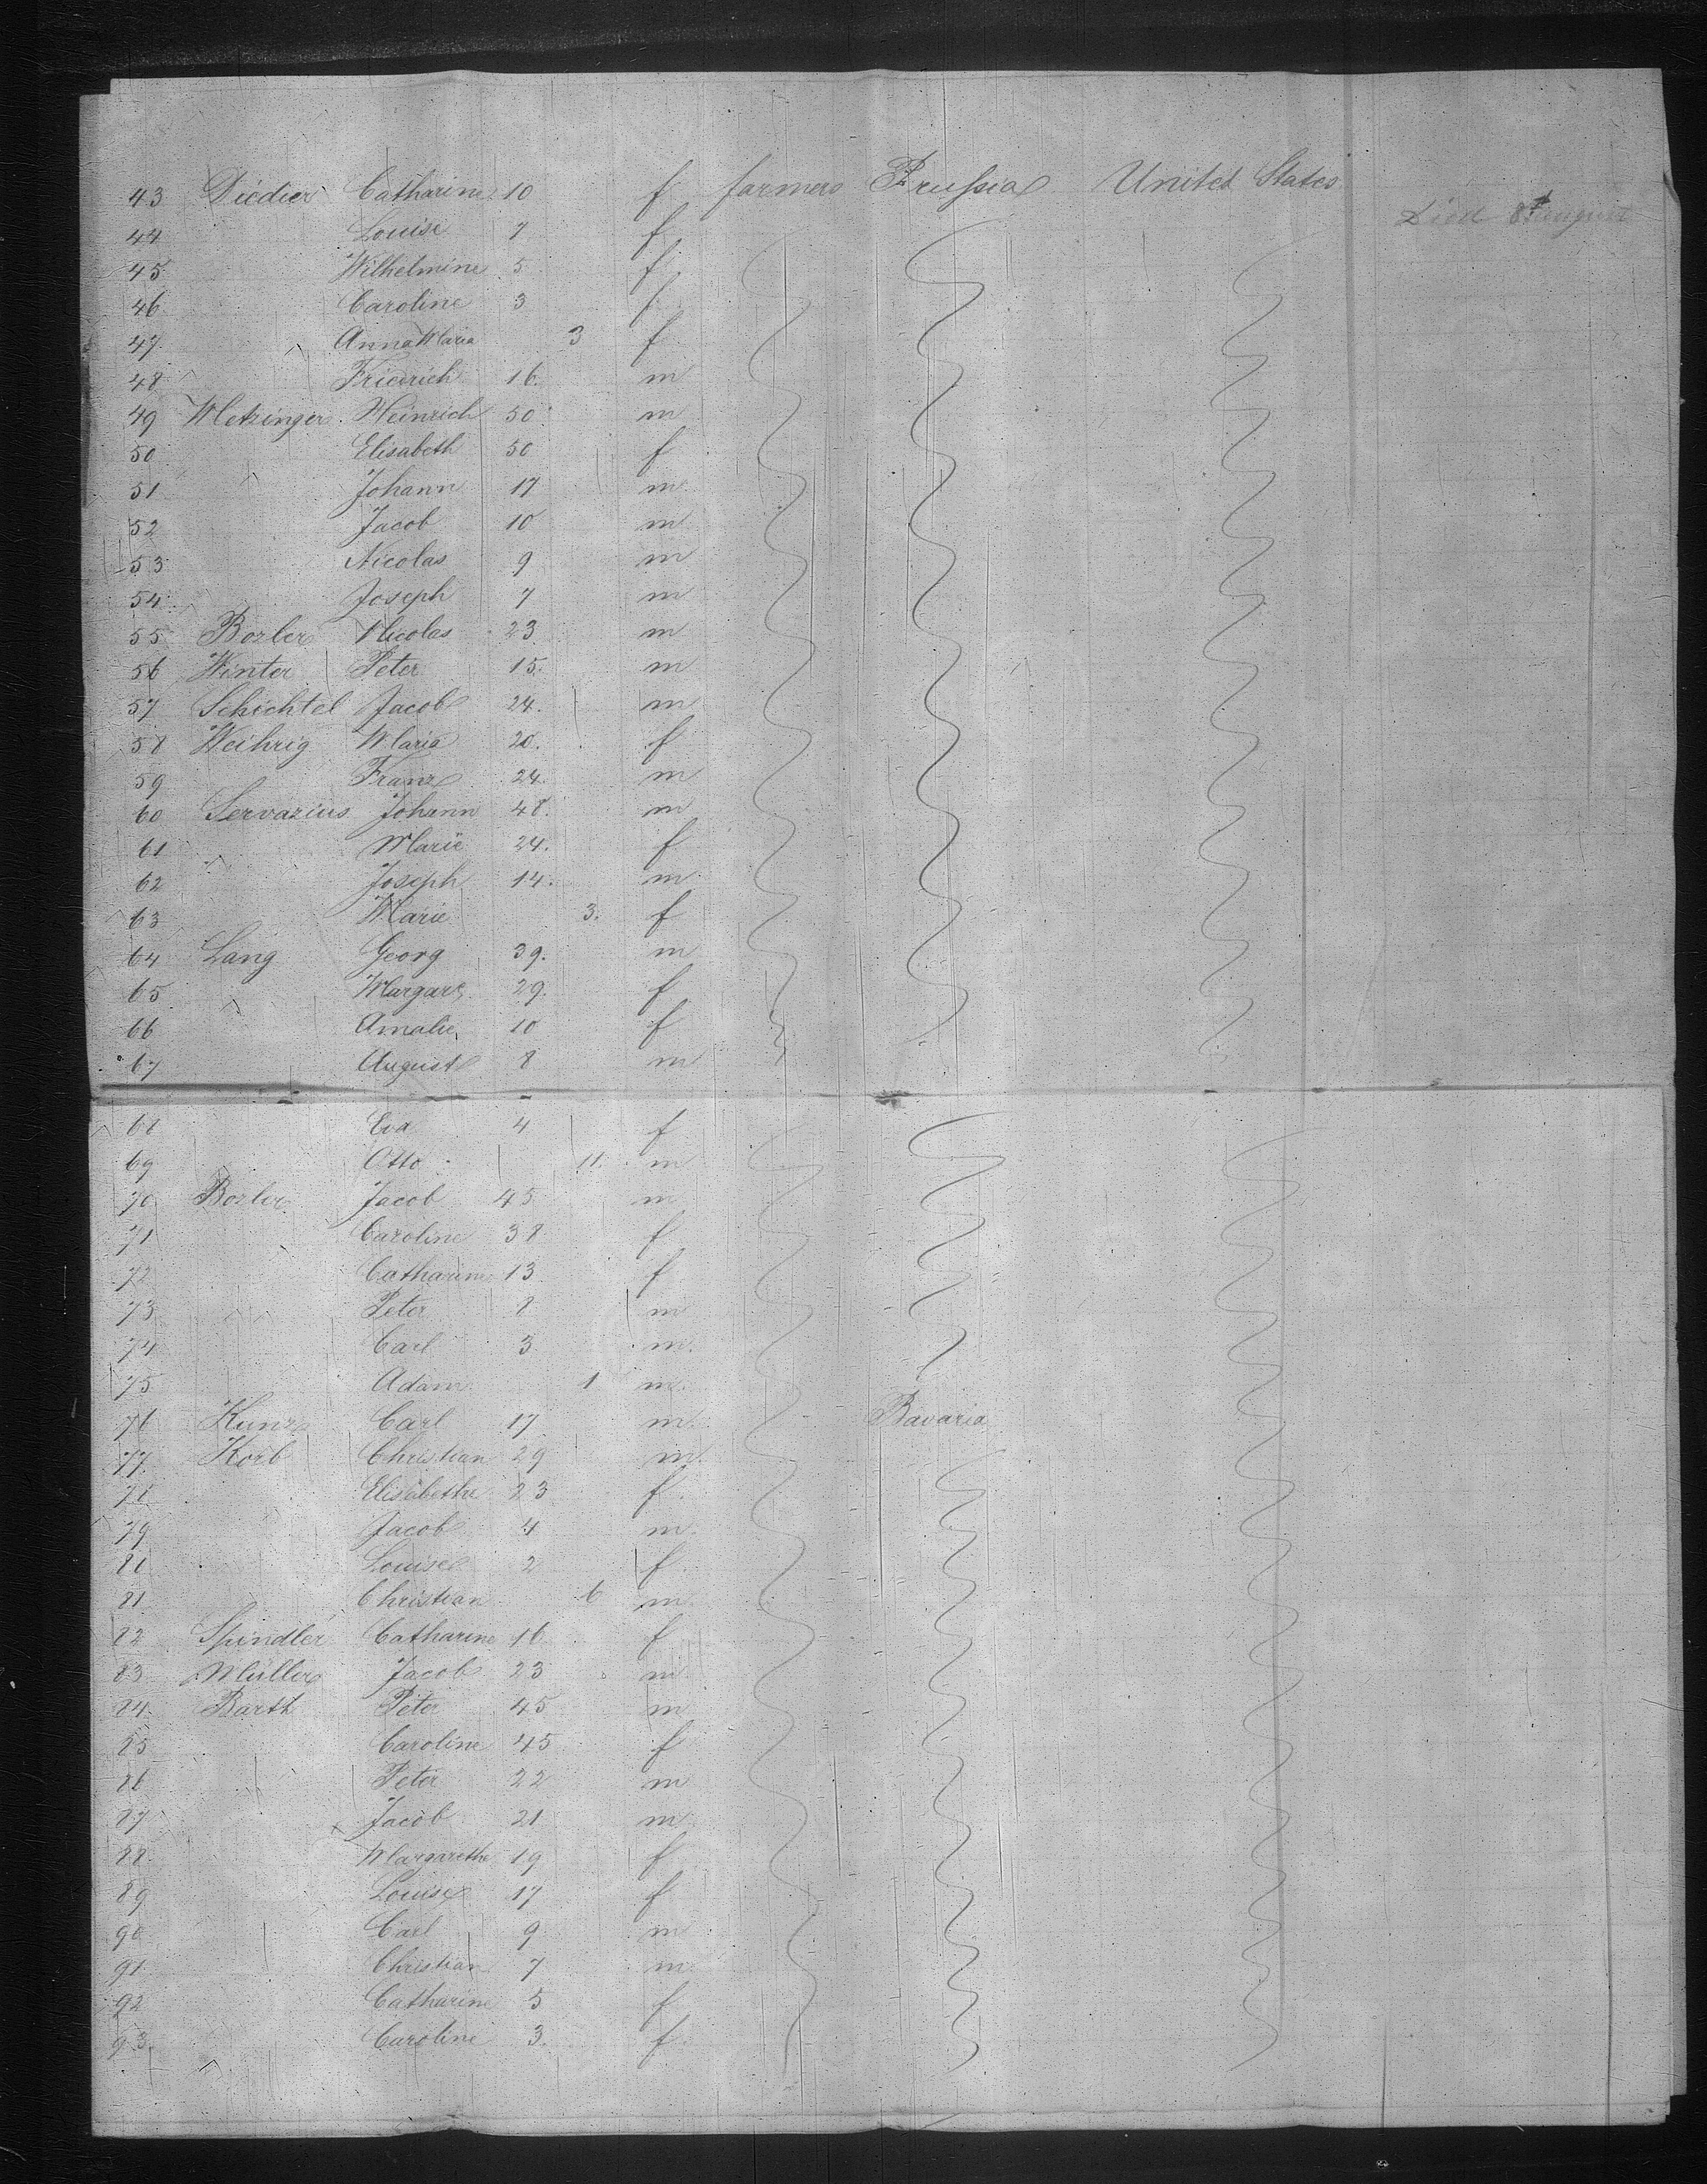 43 Diedier Catharine 10 f farmers Prussia United States
Died 8t august
44 Louise 7 f
45 Wilhelmine 5 f
46 Caroline 3 f
47 Anna Maria 3 f
48 Friedrich 16. m
49 Metzinger Heinrich 50 m
50 Elisabeth 50 f
51 Johann 17 m
52 Jacob 10 m
53 Nicolas 9 m
54 Joseph 7 m
55 Bozler Nicolas 23 m
56 Winter Peter 15. m
57 Schichtel Jacob 24. m
58 Weihrig Maria 20. f
59 Franz 24. m
60 Servazius Johann 48. m
61 Marie 24. f
62 Joseph 14. m
63 Marie 3. f
64 Lang Georg 39. m
65 Margare 29. f
66 Amalie 10 f
67 August 8 m
68 Eva 4 f
69 Otto 11. m
70 Bozler Jacob 45 m
71 Caroline 38 f
72 Catharine 13 f
73 Peter 8 m
74 Carl 3 m.
75 Adam 1 m.
76 Kunz Carl 17 m. Bavaria
77 Korb Christian 29 m.
78 Elisabethe 23 f
79 Jacob 4 m.
80 Louise 2 f
81 Christian 6 m.
82 Spindler Catharine 16 f
83 Müller Jacob 23 m
84 Barth Peter 45 m
85 Caroline 45 f
86 Peter 22 m
87 Jacob 21 m
88 Margarethe 19 f
89 Louise 17 f
90 Carl 9 m
91 Christian 7 m
92 Catharine 5 f
93 Caroline 3. f